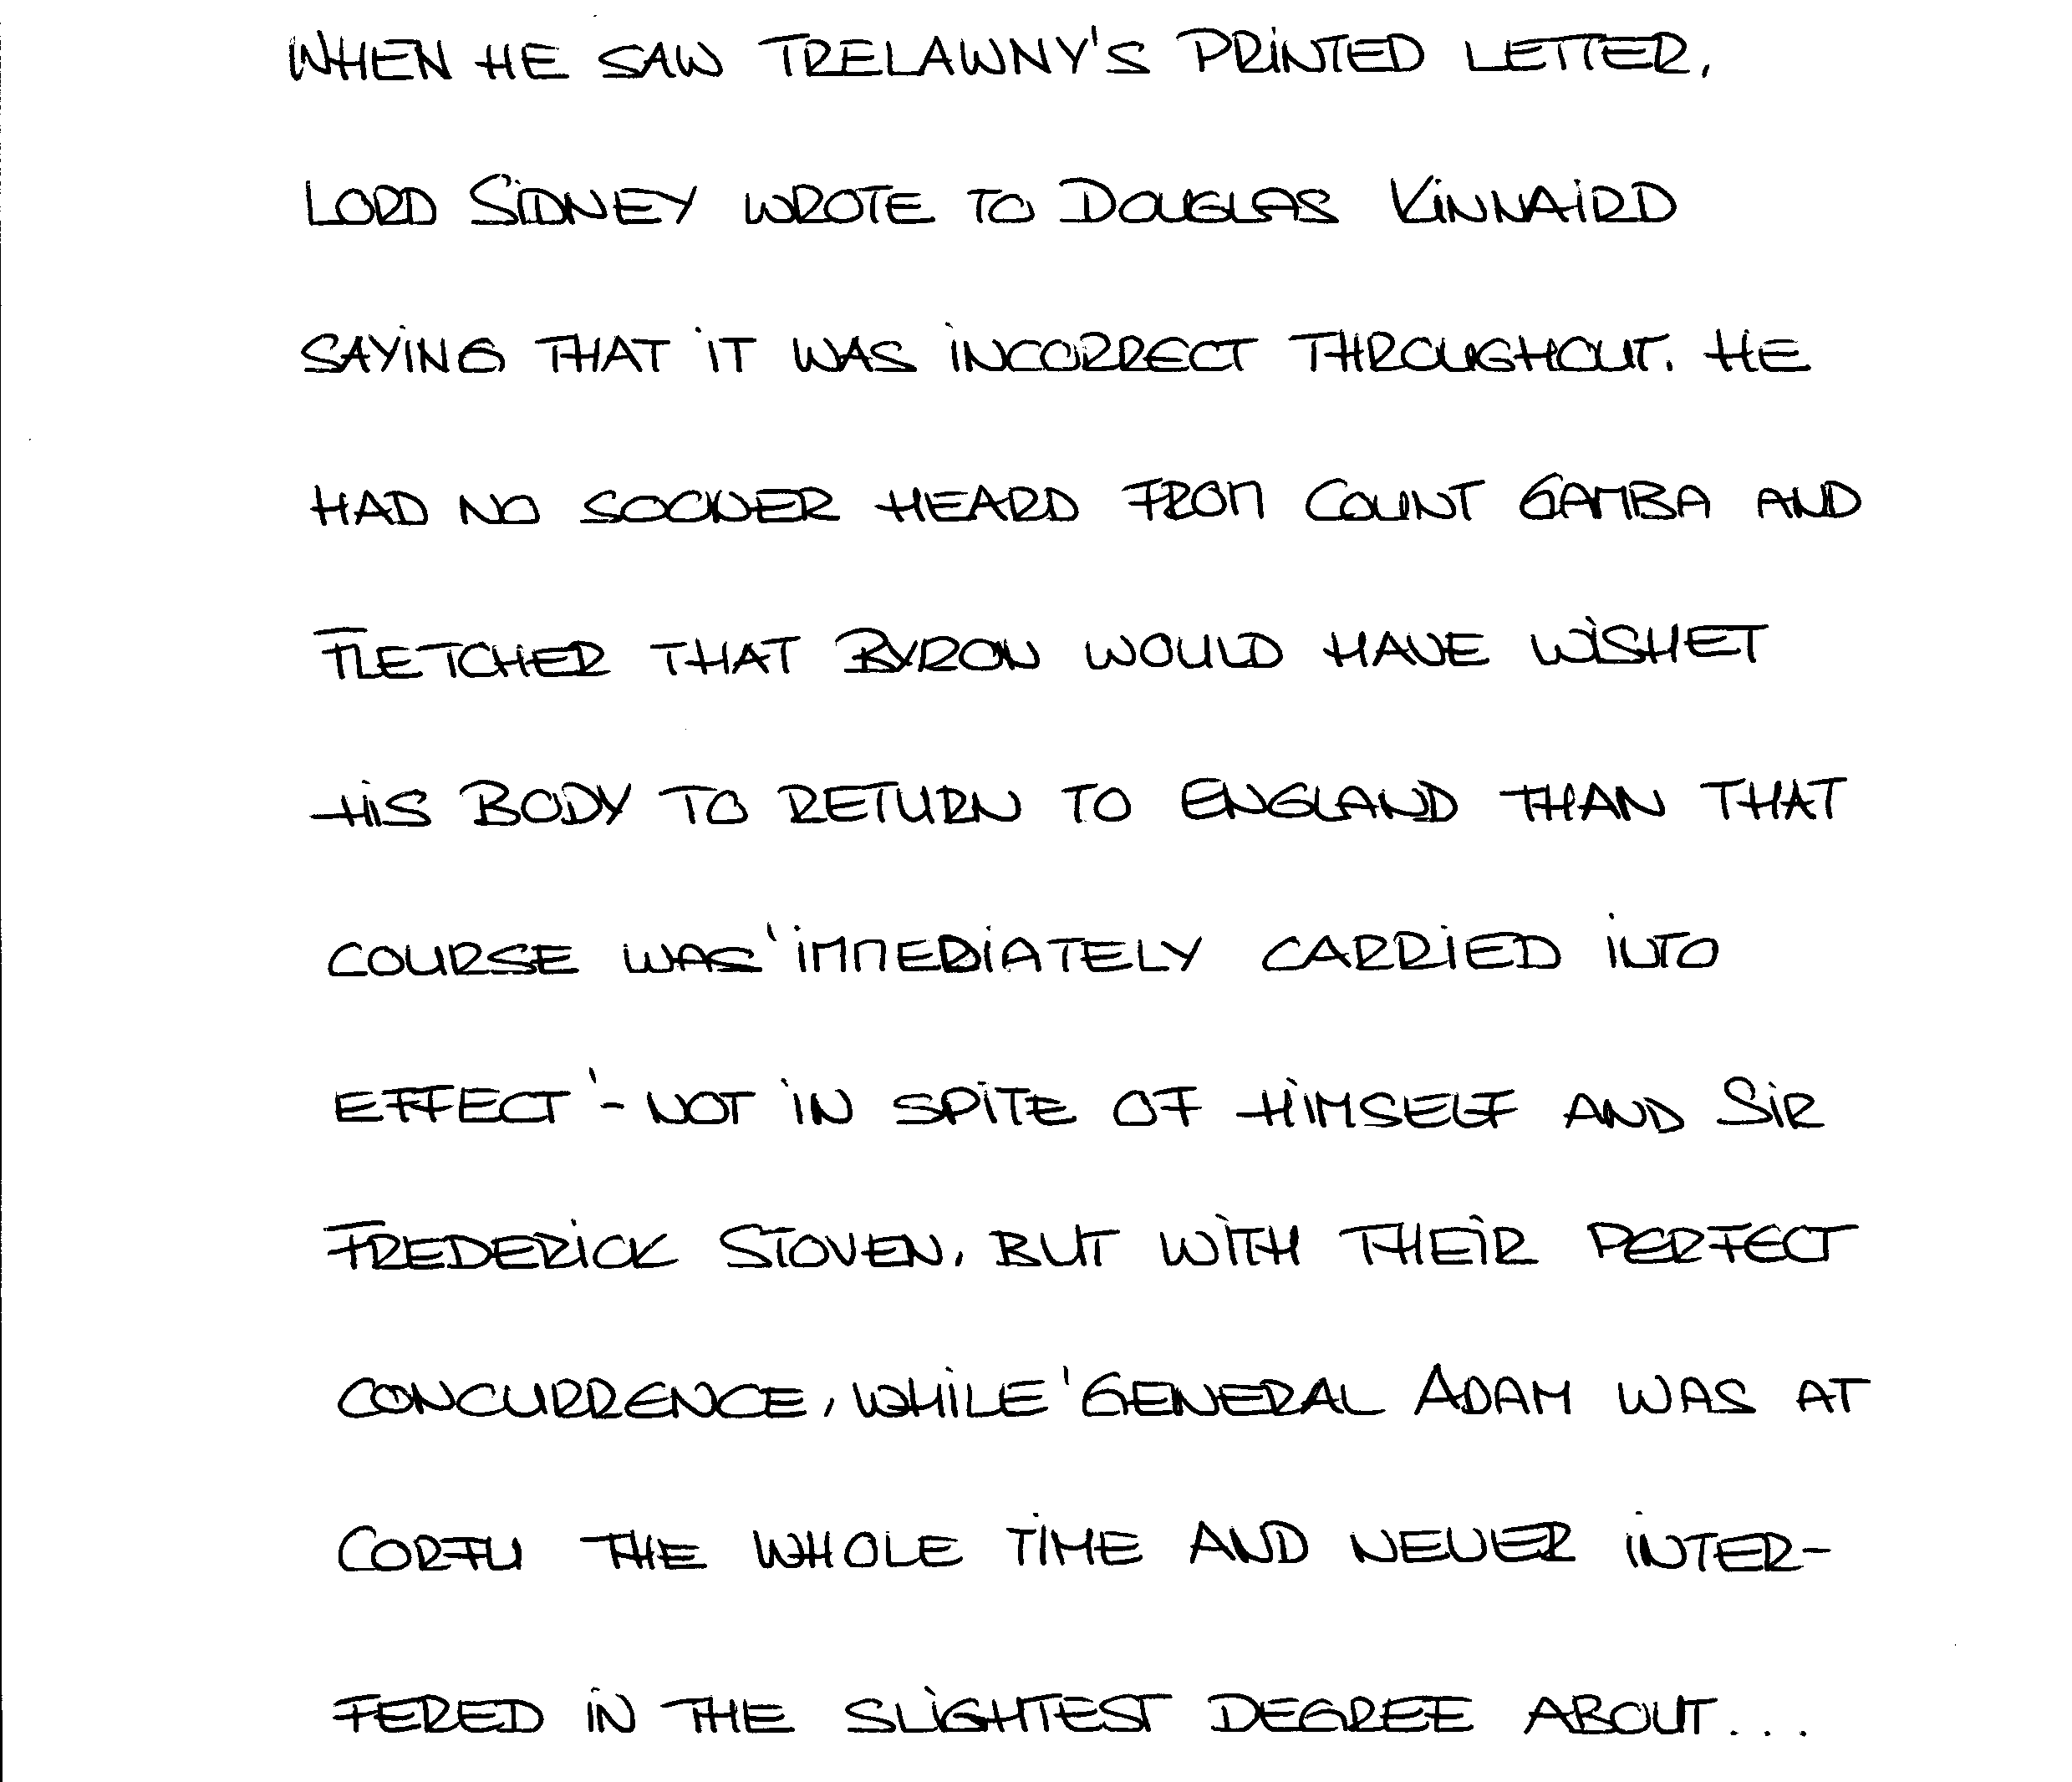 WHEN HE SAW TRELAWNY'S PRINTED LETTER,
LORD SIDNEY WROTE TO DOUGLAS KINNAIRD
SAYING THAT IT WAS INCORRECT THROUGHOUT. HE
HAD NO SOONER HEARD FROM COUNT GAMBA AND
FLETCHER THAT BYRON WOULD HAVE WISHET
HIS BODY TO RETURN TO ENGLAND THAN THAT
COURSE WAS 'IMMEDIATELY CARRIED INTO
EFFECT' - NOT IN SPITE OF HIMSELF AND SIR
FREDERICK STOVEN, BUT WITH THEIR PERFECT
CONCURRENCE, WHILE 'GENERAL ADAM WAS AT
CORFU THE WHOLE TIME AND NEVER INTER-
FERED IN THE SLIGHTEST DEGREE ABOUT...